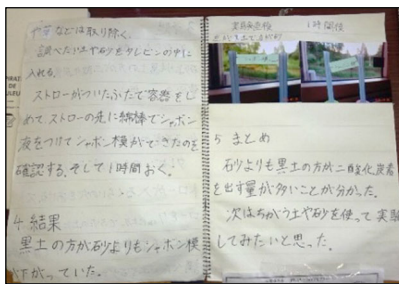 や芽などは取り除く。
調べたい土や砂をフレビンの中に
入れる。
ストローがついたふたで容器をし
めて、ストローの先に綿棒でシャボン
液をつけてシャボン膜ができたのを
確認する。そして1時間おく。
4 結果
黒土の方が砂よりもシャボン膜
が下がっていた。
実験開始後
1時間後
5 まとめ
砂よりも黒土の方が二酸化炭素
を出す量が多いことが分かった。
次はちがう土や砂を使って実験
してみたいと思った。